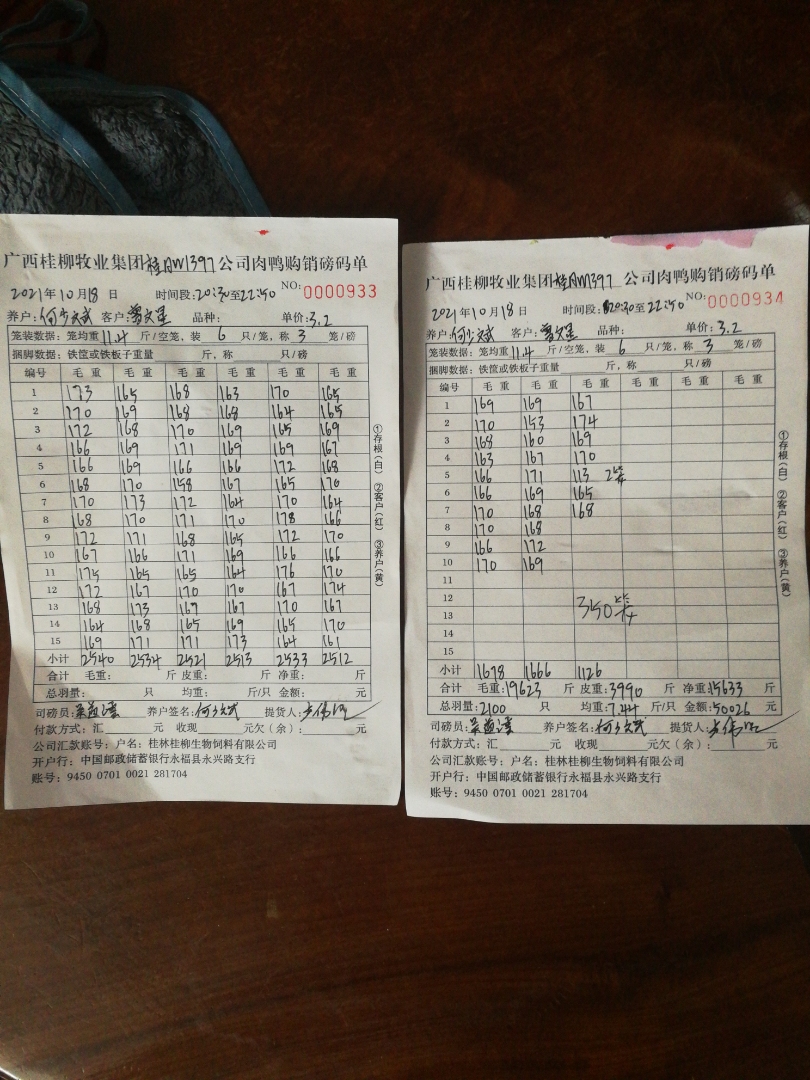 广西桂柳牧业集团桂AW1397公司肉鸭购销磅码单
2021年10月18日 时间段:20:30至22:50 NO:0000933
养户: 客户: 品种: 单价:3.2
笼装数据:笼均重11.4斤/空笼,装6只/笼,称3笼/磅
捆脚数据:铁筐或铁板子重量 斤,称 只/磅
编号 毛重 毛重 毛重 毛重 毛重 毛重
1 173 165 168 163 170 165
2 170 169 168 168 164 165
3 172 168 170 169 165 169
4 166 169 171 169 169 167
5 166 169 166 166 172 168
6 168 170 158 167 165 170
7 170 173 172 164 170 164
8 168 170 171 170 178 166
9 172 171 168 165 172 170
10 167 166 171 169 166 166
11 175 165 165 164 176 170
12 172 167 170 170 167 174
13 168 173 167 167 170 167
14 164 168 165 169 165 170
15 169 171 171 173 164 161
小计 2540 2534 2521 2513 2533 2512
合计 毛重: 斤 皮重: 斤 净重: 斤
总羽量: 只 均重: 斤/只 金额: 元
司磅员: 养户签名: 提货人:
付款方式:汇 元 收现 元欠(余): 元
公司汇款账号:户名:桂林桂柳生物饲料有限公司
开户行:中国邮政储蓄银行永福县永兴路支行
账号:9450 0701 0021 281704
①存根(白) ②客户(红) ③养户(黄)
广西桂柳牧业集团桂AW1397公司肉鸭购销磅码单
2021年10月18日 时间段:20:30至22:50 NO:0000934
养户: 客户: 品种: 单价:3.2
笼装数据:笼均重11.4斤/空笼,装6只/笼,称3笼/磅
捆脚数据:铁筐或铁板子重量 斤,称 只/磅
编号 毛重 毛重 毛重 毛重 毛重 毛重
1 169 169 167
2 170 153 174
3 168 160 169
4 163 167 170
5 166 171 113 2笼
6 166 169 165
7 170 168 168
8 170 168
9 166 172
10 170 169
11
12
13 350笼
14
15
小计 1678 1666 1126
合计 毛重:19623 斤 皮重:3990 斤 净重:15633 斤
总羽量:2100 只 均重:7.44 斤/只 金额:50026 元
司磅员: 养户签名: 提货人:
付款方式:汇 元 收现 元欠(余): 元
公司汇款账号:户名:桂林桂柳生物饲料有限公司
开户行:中国邮政储蓄银行永福县永兴路支行
账号:9450 0701 0021 281704
①存根(白) ②客户(红) ③养户(黄)